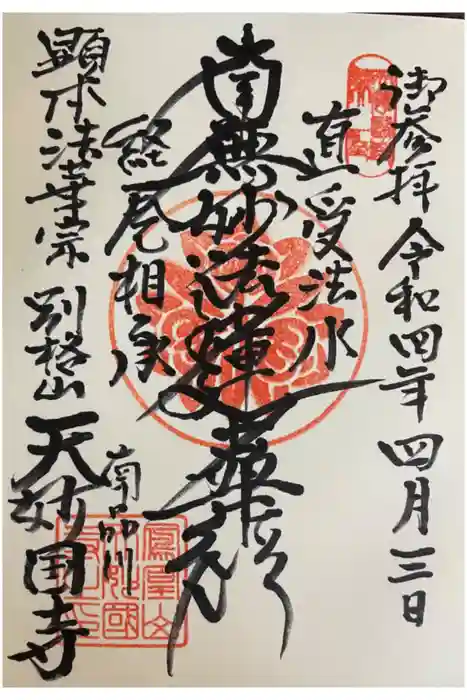 御参拝 令和四年四月三日
直受法水
南無妙法蓮華経
経巻相承
南品川
顕本法華宗 別格山 天妙国寺